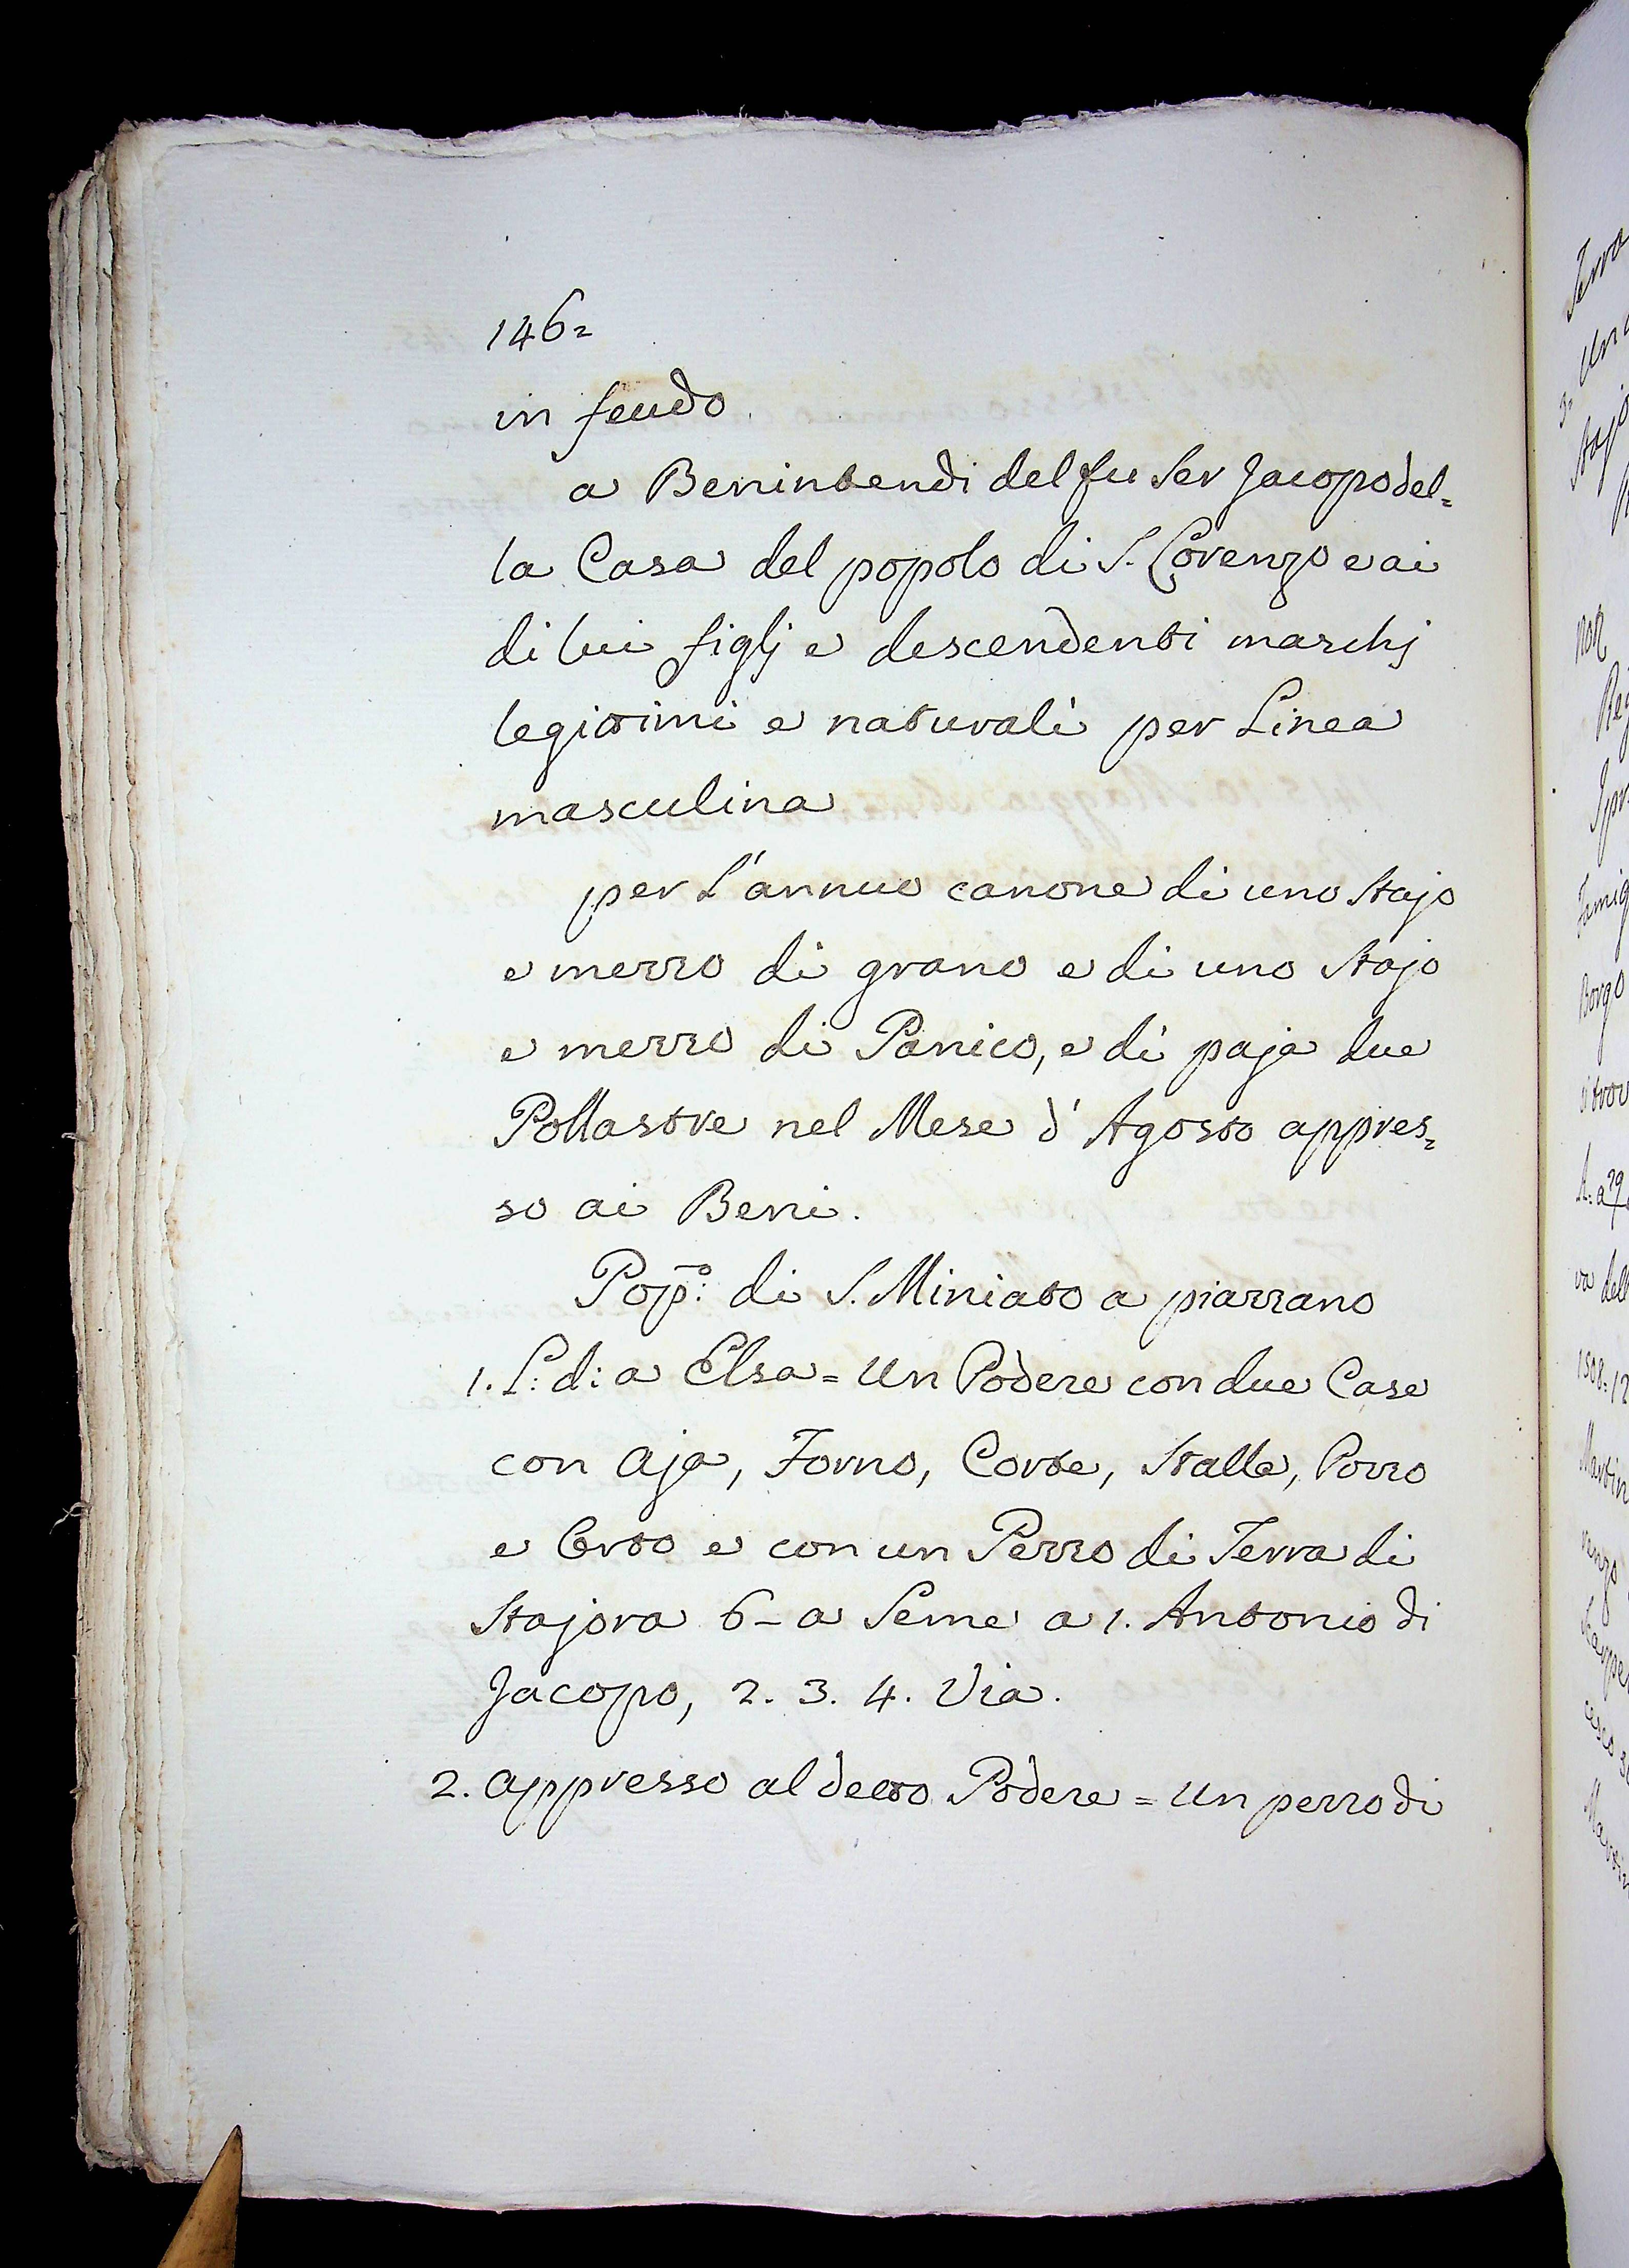 146=
in feudo
a Benintendi del fu Ser Jacopo del=
la Casa del popolo di S. Lorenzo e ai
di lui figlj e descendenti maschj
legitimi e naturali per Linea
masculina
per L'annuo canone di uno Stajo
e mezzo di grano e di uno Stajo
e mezzo di Panico, e di paja due
Pollastre nel Mese d'Agosto appres=
so ai Beni.
Pop:o di S. Miniato a piazzano
1. L: d: a Elsa = Un Podere con due Case
con Aja, Forno, Corte, Stalla, Pozzo
e Orto e con un Pezzo di Terra di
Stajora 6 - a Seme a 1. Antonio di
Jacopo, 2. 3. 4. Via.
2. Appresso al detto Podere = Un pezzo di